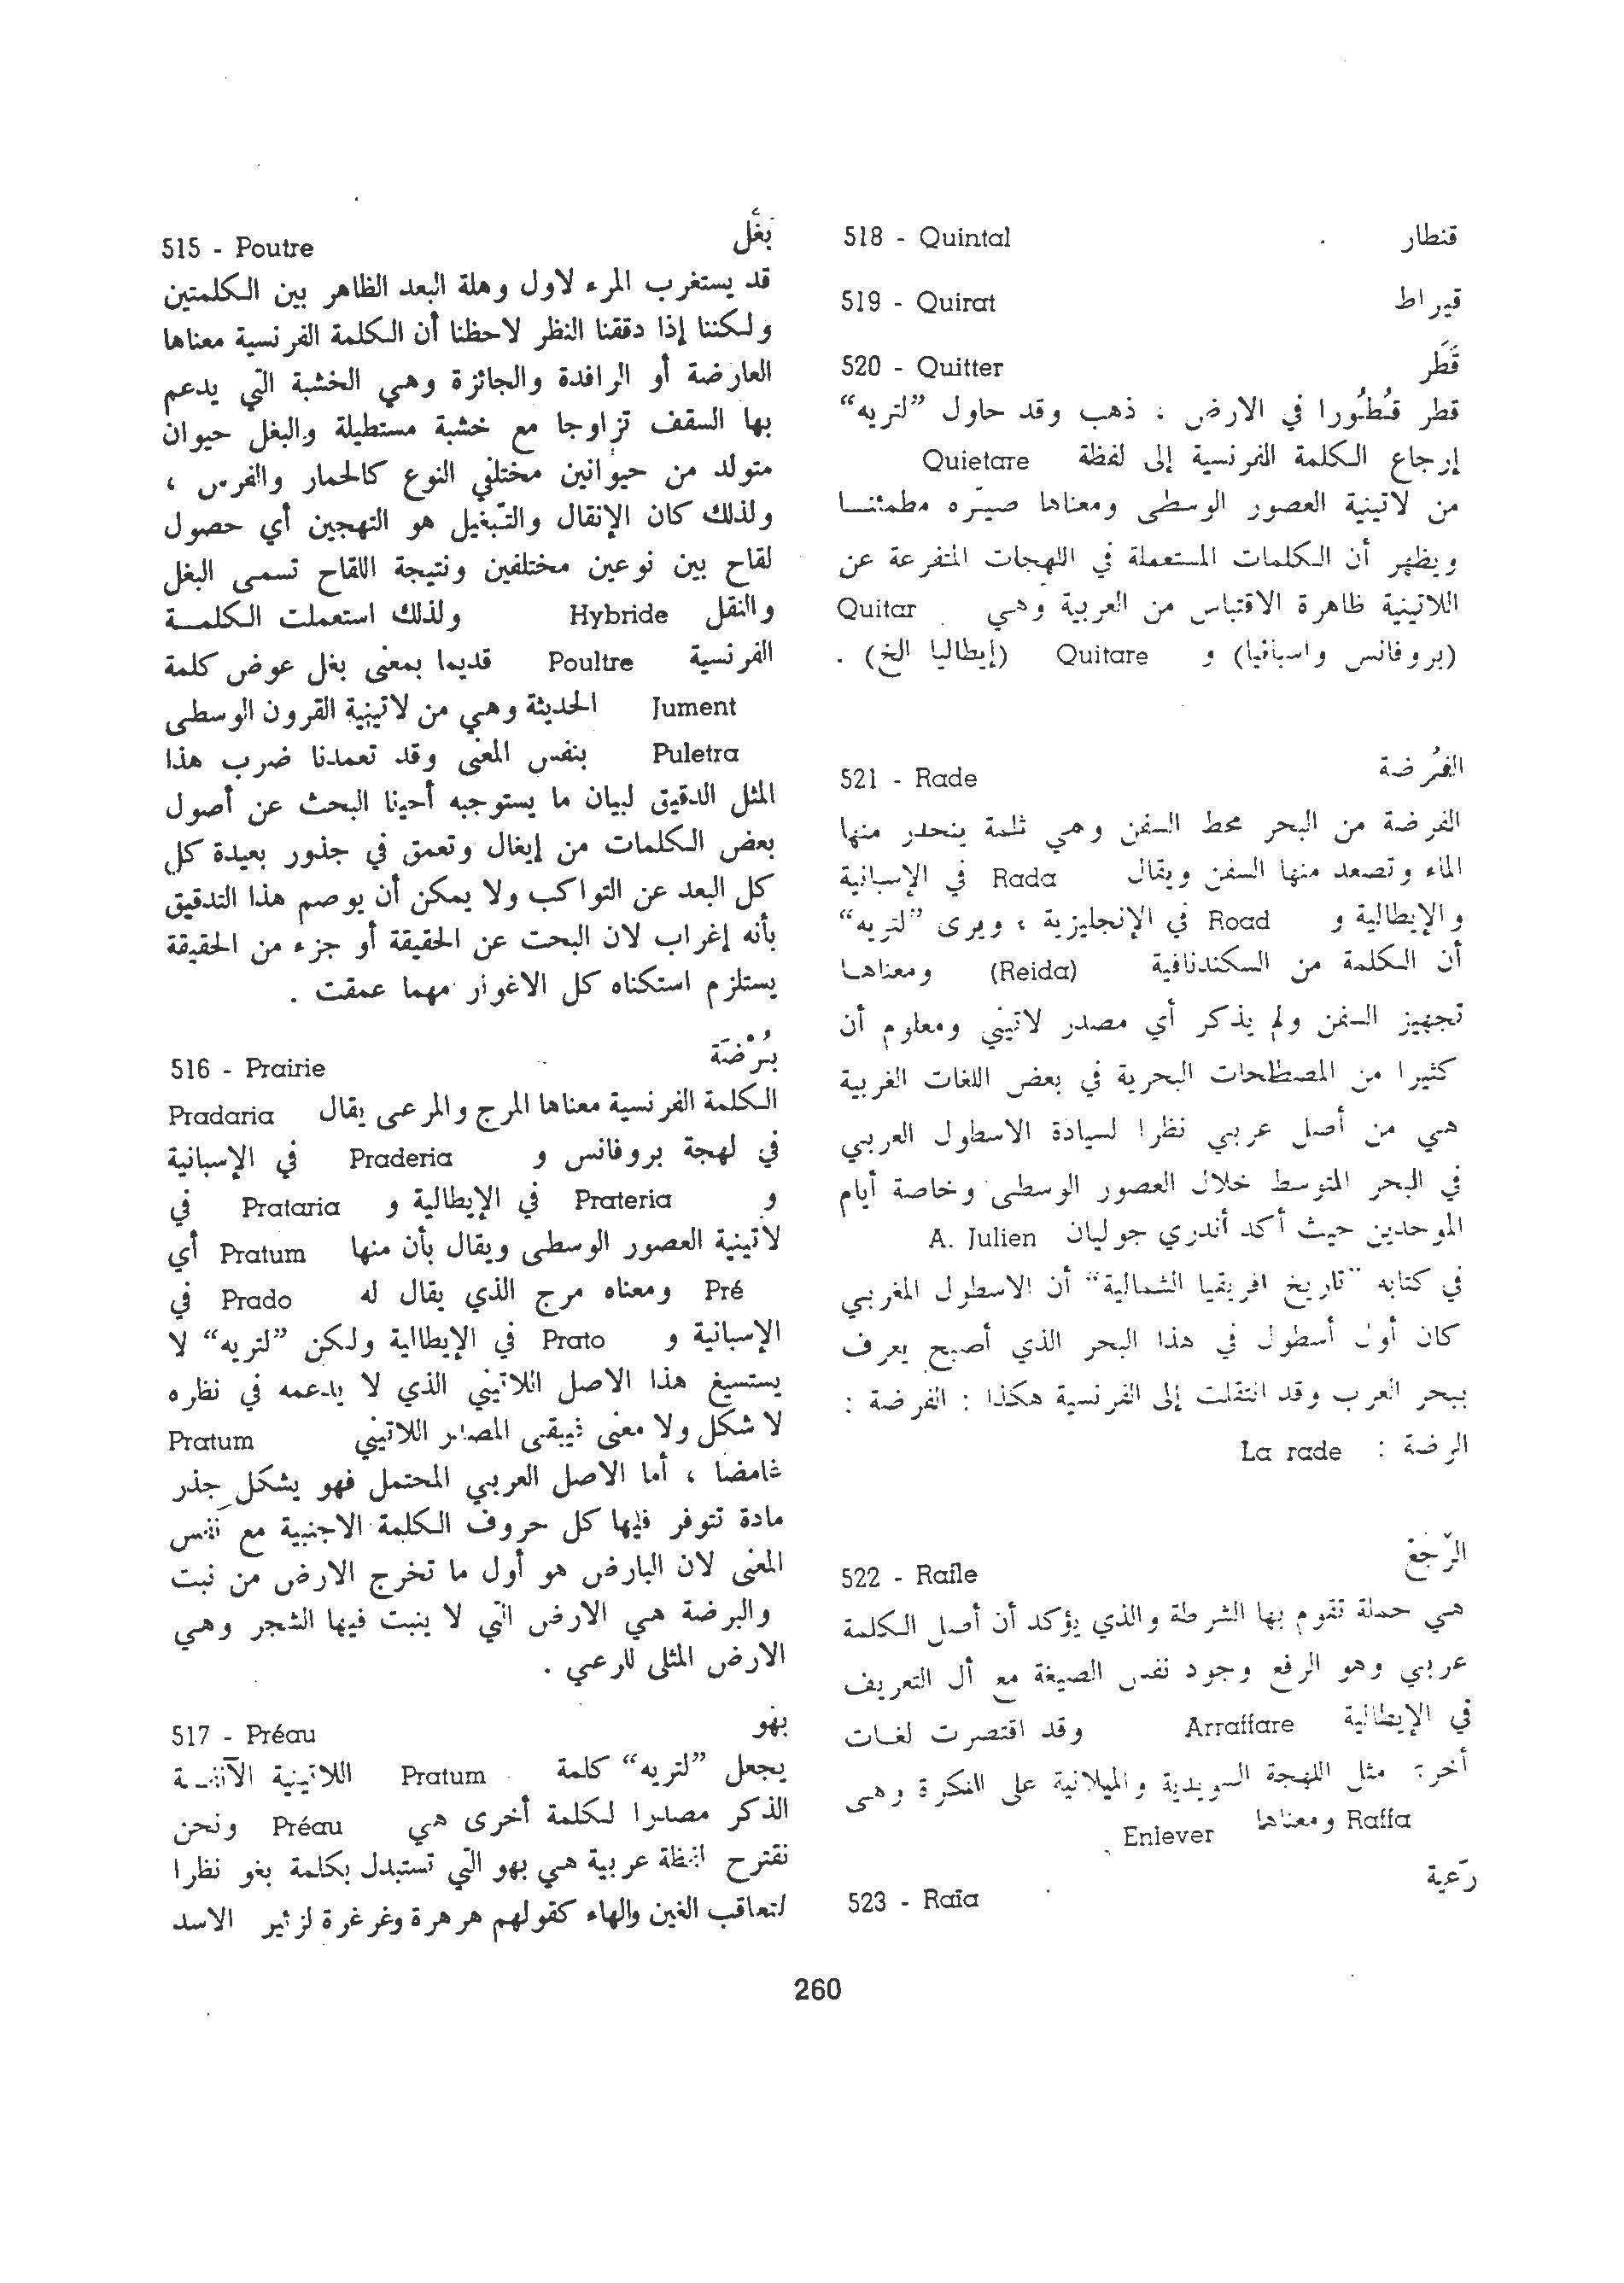 515 - Poutre بَغْل
قد يستغرب المرء لاول وهلة البعد الظاهر بين الكلمتين
ولكننا إذا دققنا النظر لاحظنا أن الكلمة الفرنسية معناها
العارضة أو الرافدة والجائزة وهي الخشبة التي يدعم
بها السقف تزاوجا مع خشبة مستطيلة والبغل حيوان
متولد من حيوانين مختلفي النوع كالحمار والفرس ،
ولذلك كان الإنقال والتّبغيل هو التهجين أي حصول
لقاح بين نوعين مختلفين ونتيجة اللقاح تسمى البغل
والنقل Hybride ولذلك استعملت الكلمــة
الفرنسية Poultre قديما بمعنى بغل عوض كلمة
Jument الحديثة وهي من لاتينية القرون الوسطى
Puletra بنفس المعنى وقد تعمدنا ضرب هذا
المثل الدقيق لبيان ما يستوجبه أحينا البحث عن أصول
بعض الكلمات من إيغال وتعمق في جذور بعيدة كل
كل البعد عن التواكب ولا يمكن أن يوصم هذا التدقيق
بأنه إغراب لان البحت عن الحقيقة أو جزء من الحقيقة
يستلزم استكناه كل الاغوار مهما عمقت .
516 - Prairie بُرْضَة
الكلمة الفرنسية معناها المرج والمرعى يقال Pradaria
في لهجة بروفانس و Praderia في الإسبانية
و Prateria في الإيطالية و Prataria في
لاتينية العصور الوسطى ويقال بأن منها Pratum أي
Pré ومعناه مرج الذي يقال له Prado في
الإسبانية و Prato في الإيطاالية ولكن ”لتريه“ لا
يستسيغ هذا الاصل اللاتيني الذي لا يدعمه في نظره
لا شكل ولا معنى فيبقى المصدر اللاتيني Pratum
غامضا ، أما الاصل العربي المحتمل فهو يشكل جذر
مادة تتوفر فيها كل حروف الكلمة الاجنبية مع نفس
المعنى لان البارض هو أول ما تخرج الارض من نبت
والبرضة هي الارض التي لا ينبت فيها الشجر وهي
الارض المثلى للرعي .
517 - Préau بهو
يجعل ”لتريه“ كلمة Pratum اللاتينية الآنفــة
الذكر مصدرا لكلمة أخرى هي Préau ونحن
نقترح لفظة عربية هي بهو التي تستبدل بكلمة بغو نظرا
لتعاقب الغين والهاء كقولهم هرهرة وغرغرة لزئير الاسد
518 - Quintal قنطار
519 - Quirat قيراط
520 - Quitter قَطَر
قطر قُطُورا في الارض : ذهب وقد حاول ”لتريه“
إرجاع الكلمة الفرنسية إلى لفظة Quietare
من لاتينية العصور الوسطى ومعناها صيّره مطمئنــا
ويظهر أن الكلمات المستعملة في اللهجات المتفرعة عن
اللاتينية ظاهرة الاقتباس من العربية وهي Quitar
(بروفانس واسبانيا) و Quitare (إيطاليا الخ) .
521 - Rade الفُرضة
الفرضة من البحر محط السفن وهي ثلمة ينحدر منها
الماء وتصعد منها السفن ويقال Rada في الإسبانية
والإيطالية و Road في الإنجليزية ، ويرى ”لتريه“
أن الكلمة من السكندنافية (Reida) ومعناهـا
تجهيز السفن ولم يذكر أي مصدر لاتيني ومعلوم أن
كثيرا من المصطلحات البحرية في بعض اللغات الغربية
هي من أصل عربي نظرا لسيادة الاسطول العربي
في البحر المتوسط خلال العصور الوسطى وخاصة أيام
الموحدين حيث أكد أندري جوليان A. Julien
في كتابه ”تاريخ افريقيا الشمالية“ أن الاسطول المغربي
كان أول أسطول في هذا البحر الذي أصبح يعرف
ببحر العرب وقد انتقلت إلى الفرنسية هكذا : الفرضة :
الرضة : La rade
522 - Rafle الرّجْع
هي حملة تقوم بها الشرطة والذي يؤكد أن أصل الكلمة
عربي وهو الرفع وجود نفس الصيغة مع أل التعريف
في الإيطالية Arraffare وقد اقتصرت لغـات
أخرى مثل اللهجة السويدية والميلانية على النكرة وهي
Raffa ومعناها Enlever .
523 - Raïa رّعية
260